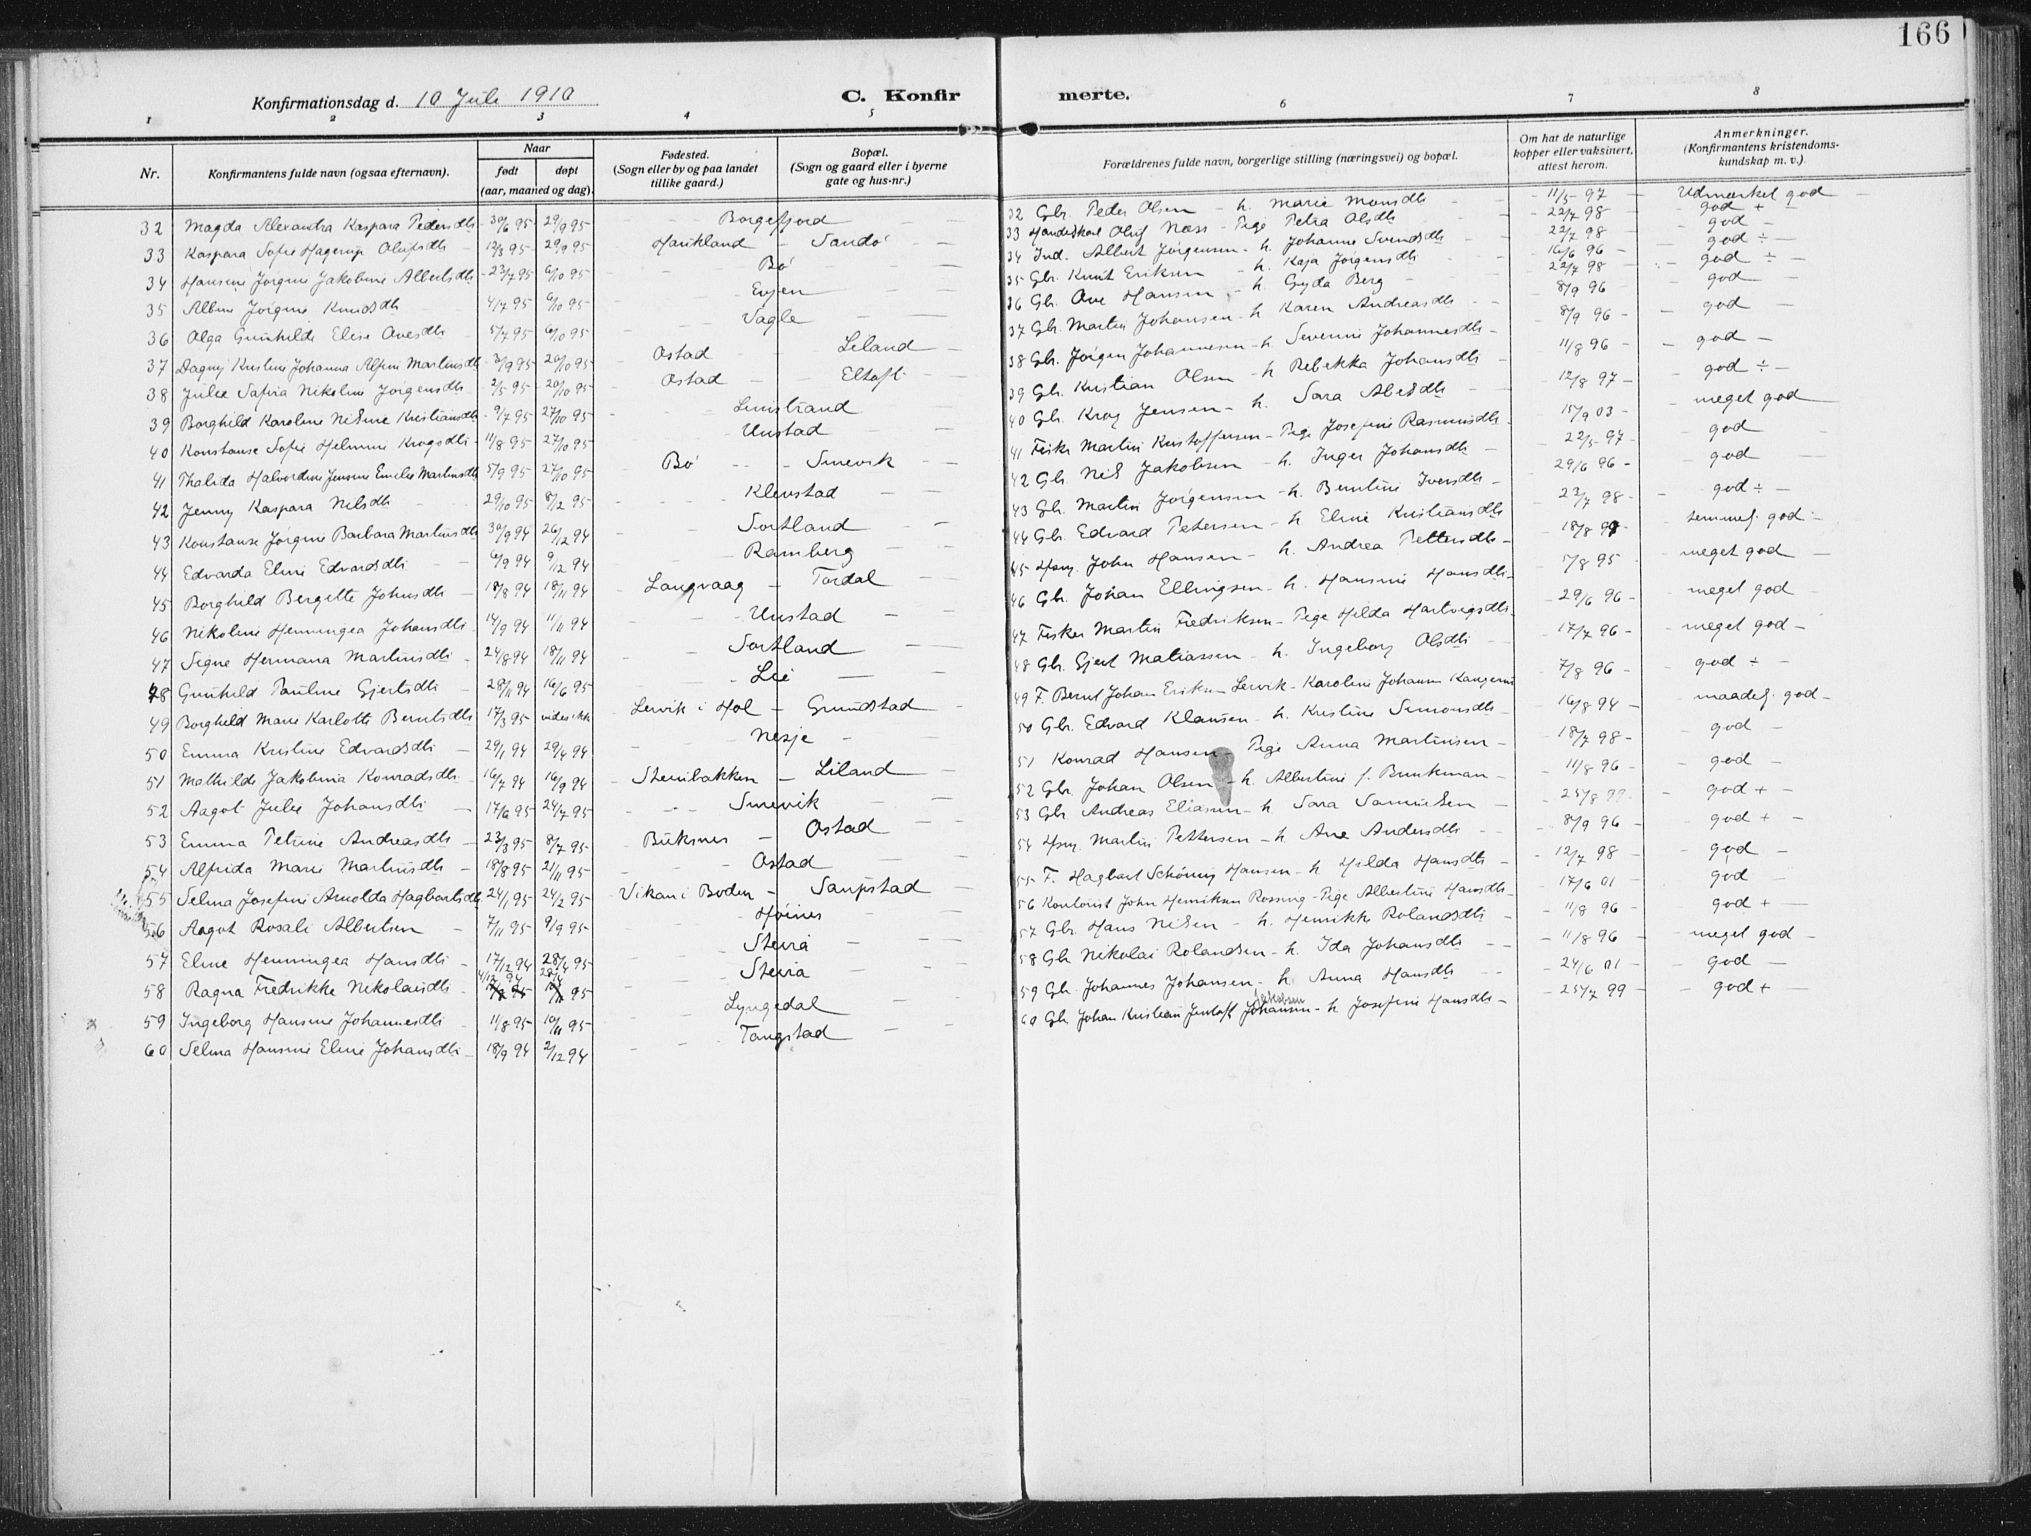 166
Konfirmationsdag d. 10 Juli 1910
C. Konfirmerte.
1 2 3 4 5 6 7 8
Nr. Konfirmantens fulde navn (ogsaa efternavn). Naar født døpt (aar, maaned og dag). Fødested. (Sogn eller by og paa landet tillike gaard.) Bopæl. (Sogn og gaard eller i byerne gate og hus-nr.) Forældrenes fulde navn, borgerlige stilling (næringsvei) og bopæl. Om hat de naturlige kopper eller vaksinert, attest herom. Anmerkninger. (Konfirmantens kristendomskundskap m. v.)
32 Magda Alexandra Kaspara Pedersdtr 30/6 95 29/9 95 Borgefjord 32 Gbr. Peder Olsen - h. Marie Monsdtr 11/5 97 Udmerket god
33 Kaspara Sofie Hagerup Olufsdtr 12/3 95 29/9 95 Haukland - Sandø 33 Handelskarl Oluf Næss - Pige Petra Olsdtr 22/7 98 god +
34 Hansine Jørgine Jakobine Albertsdtr 23/7 95 6/10 95 Bø 34 Ind. Albert Jørgensen - h. Johanne Svendsdtr 22/7 98 god
35 Albine Jørgine Knudsdtr 4/7 95 6/10 95 Evjen 35 Gbr. Knut Eriksen - h. Kaja Jørgensdtr 16/6 96 god ÷
36 Olga Gunhilde Elise Ovesdtr 5/7 95 6/10 95 Vagle 36 Gbr. Ove Hansen - h. Gyda Berg 22/7 98 god ÷
37 Dagny Kristine Johanna Alfine Martinsdtr 3/9 95 20/10 95 Ostad - Liland 37 Gbr. Martin Johansen - h. Karen Andreasdtr 8/9 96 god
38 Julie Safira Nikoline Jørgensdtr 2/5 95 20/10 95 Ostad - Eltoft 38 Gbr. Jørgen Johannesen - h. Severine Johannesdtr 8/9 96 god
39 Borghild Karoline Nelsine Kristiansdtr 9/7 95 27/10 95 Limstrand 39 Gbr. Kristian Olsen - h. Rebekka Johansdtr 11/8 96 god
40 Konstanse Sofie Helmine Krogsdtr 11/8 95 27/10 95 Unstad 40 Gbr. Krog Jensen - h. Sara Abelsdtr 12/8 97 god ÷
41 Thalida Halvordine Jensine Emilie Martinsdtr 5/9 95 27/10 95 Bø - Smevik 41 Fisker Martin Kristoffersen - Pige Josefine Rasmusdtr 15/9 03 meget god
42 Jenny Kaspara Nilsdtr 29/10 95 8/12 95 Klenstad 42 Gbr. Nils Jakobsen - h. Inger Johansdtr 22/5 97 god
43 Konstanse Jørgine Barbara Martinsdtr 30/9 94 26/12 94 Sortland 43 Gbr. Martin Jørgensen - h. Berntine Iversdtr 29/6 96 god
44 Edvarda Eline Edvardsdtr 6/9 94 9/12 94 Ramberg 44 Gbr. Edvard Petersen - h Eline Kristiansdtr 23/7 98 god ÷
45 Borghild Bergitte Johnsdtr 18/8 94 18/11 94 Langvaag - Tordal 45 Hsm. John Hansen - h. Andrea Pettersdtr 18/8 97 temmel. god
46 Nikoline Henningea Johansdtr 14/9 94 11/11 94 Unstad 46 Gbr. Johan Ellingsen - h. Hansine Hansdtr 5/8 95 meget god
47 Signe Hermana Martinsdtr 24/8 94 18/11 94 Sortland 47 Fisker Martin Fredriksen - Pige Hilda Hartvigsdtr 29/6 96 meget god
48 Gunhild Pauline Gjertsdtr 28/11 94 16/6 95 Lie 48 Gbr. Gjert Matiassen - h. Ingeborg Olsdtr 17/7 96 meget god
49 Borghild Marie Karlotte Berntsdtr 17/3 95 vides ikke Lervik i Hol - Grundstad 49 F. Bernt Johan Eriksen Lervik - Karoline Johanna 7/8 96 god ÷
50 Emma Kristine Edvardsdtr 29/1 94 29/4 94 Nesje 50 Gbr. Edvard Klausen - h. Kristine Simonsdtr 16/8 94 maadel. god
51 Mathilde Jakobina Konradsdtr 16/7 94 16/9 94 Stenbakken - Liland 51 Konrad Hansen - Pige Anna Martinsen 18/7 98 god
52 Aagot Julie Johansdtr 17/6 95 24/7 95 Smevik 52 Gbr. Johan Olsen - h. Albertine f. Brinkman 11/8 96 god
53 Emma Petrine Andreasdtr 23/3 95 8/7 95 Buksnes - Ostad 53 Gbr. Andreas Eliasen - h Sara Samuelsen 25/8 99 god +
54 Alfrida Marie Martinsdtr 18/8 95 21/11 95 Ostad 54 Hsm. Martin Pettersen - h. Ane Andersdtr 8/9 96 god +
55 Selma Josefine Arnolda Hagbartsdtr 24/1 95 24/2 95 Vikan i Bodøn - Saupstad 55 F. Hagbart Schöning Hansen - h Hilda Hansdtr 12/7 98 god
56 Aagot Rosali Albertsen 7/11 95 9/9 95 Høines 56 Kontorist John Henriksen Rossing - Pige Albertine Hansdtr 17/6 01 god
57 Eline Henningea Hansdtr 17/12 94 28/4 95 Steira 57 Gbr. Hans Nilsen - h. Henrikke Rolandsdtr 11/8 96 god +
58 Ragna Fredrikke Nikolaisdtr 4/12 94 28/4 95 Steira 58 Gbr Nikolai Rolandsen - h. Ida Johansdtr 11/8 96 meget god
59 Ingeborg Hansine Johannesdtr 11/8 95 10/11 95 Lyngedal 59 Gbr. Johannes Johansen - h. Anna Hansdtr 24/6 01 god
60 Selma Hansine Eline Johansdtr 18/9 94 2/12 94 Tangstad 60 Gbr Johan Kristian Jentoft Johansen Jakobsen - h Josefine Hansdtr 25/7 99 god +